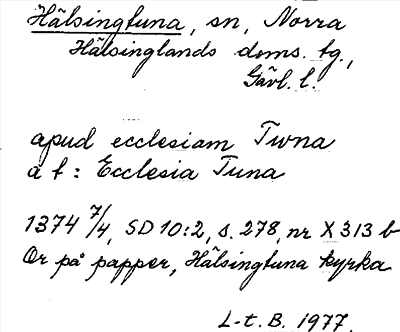 Hälsingtuna, sn, Norra
Hälsinglands doms. tg.,
Gävl. l.
apud ecclesiam Twna
a t : Ecclesia Tuna
1374 7/4, SD 10:2, s. 278, nr X 313 b
Or på papper, Hälsingtuna kyrka
L-t. B. 1977.